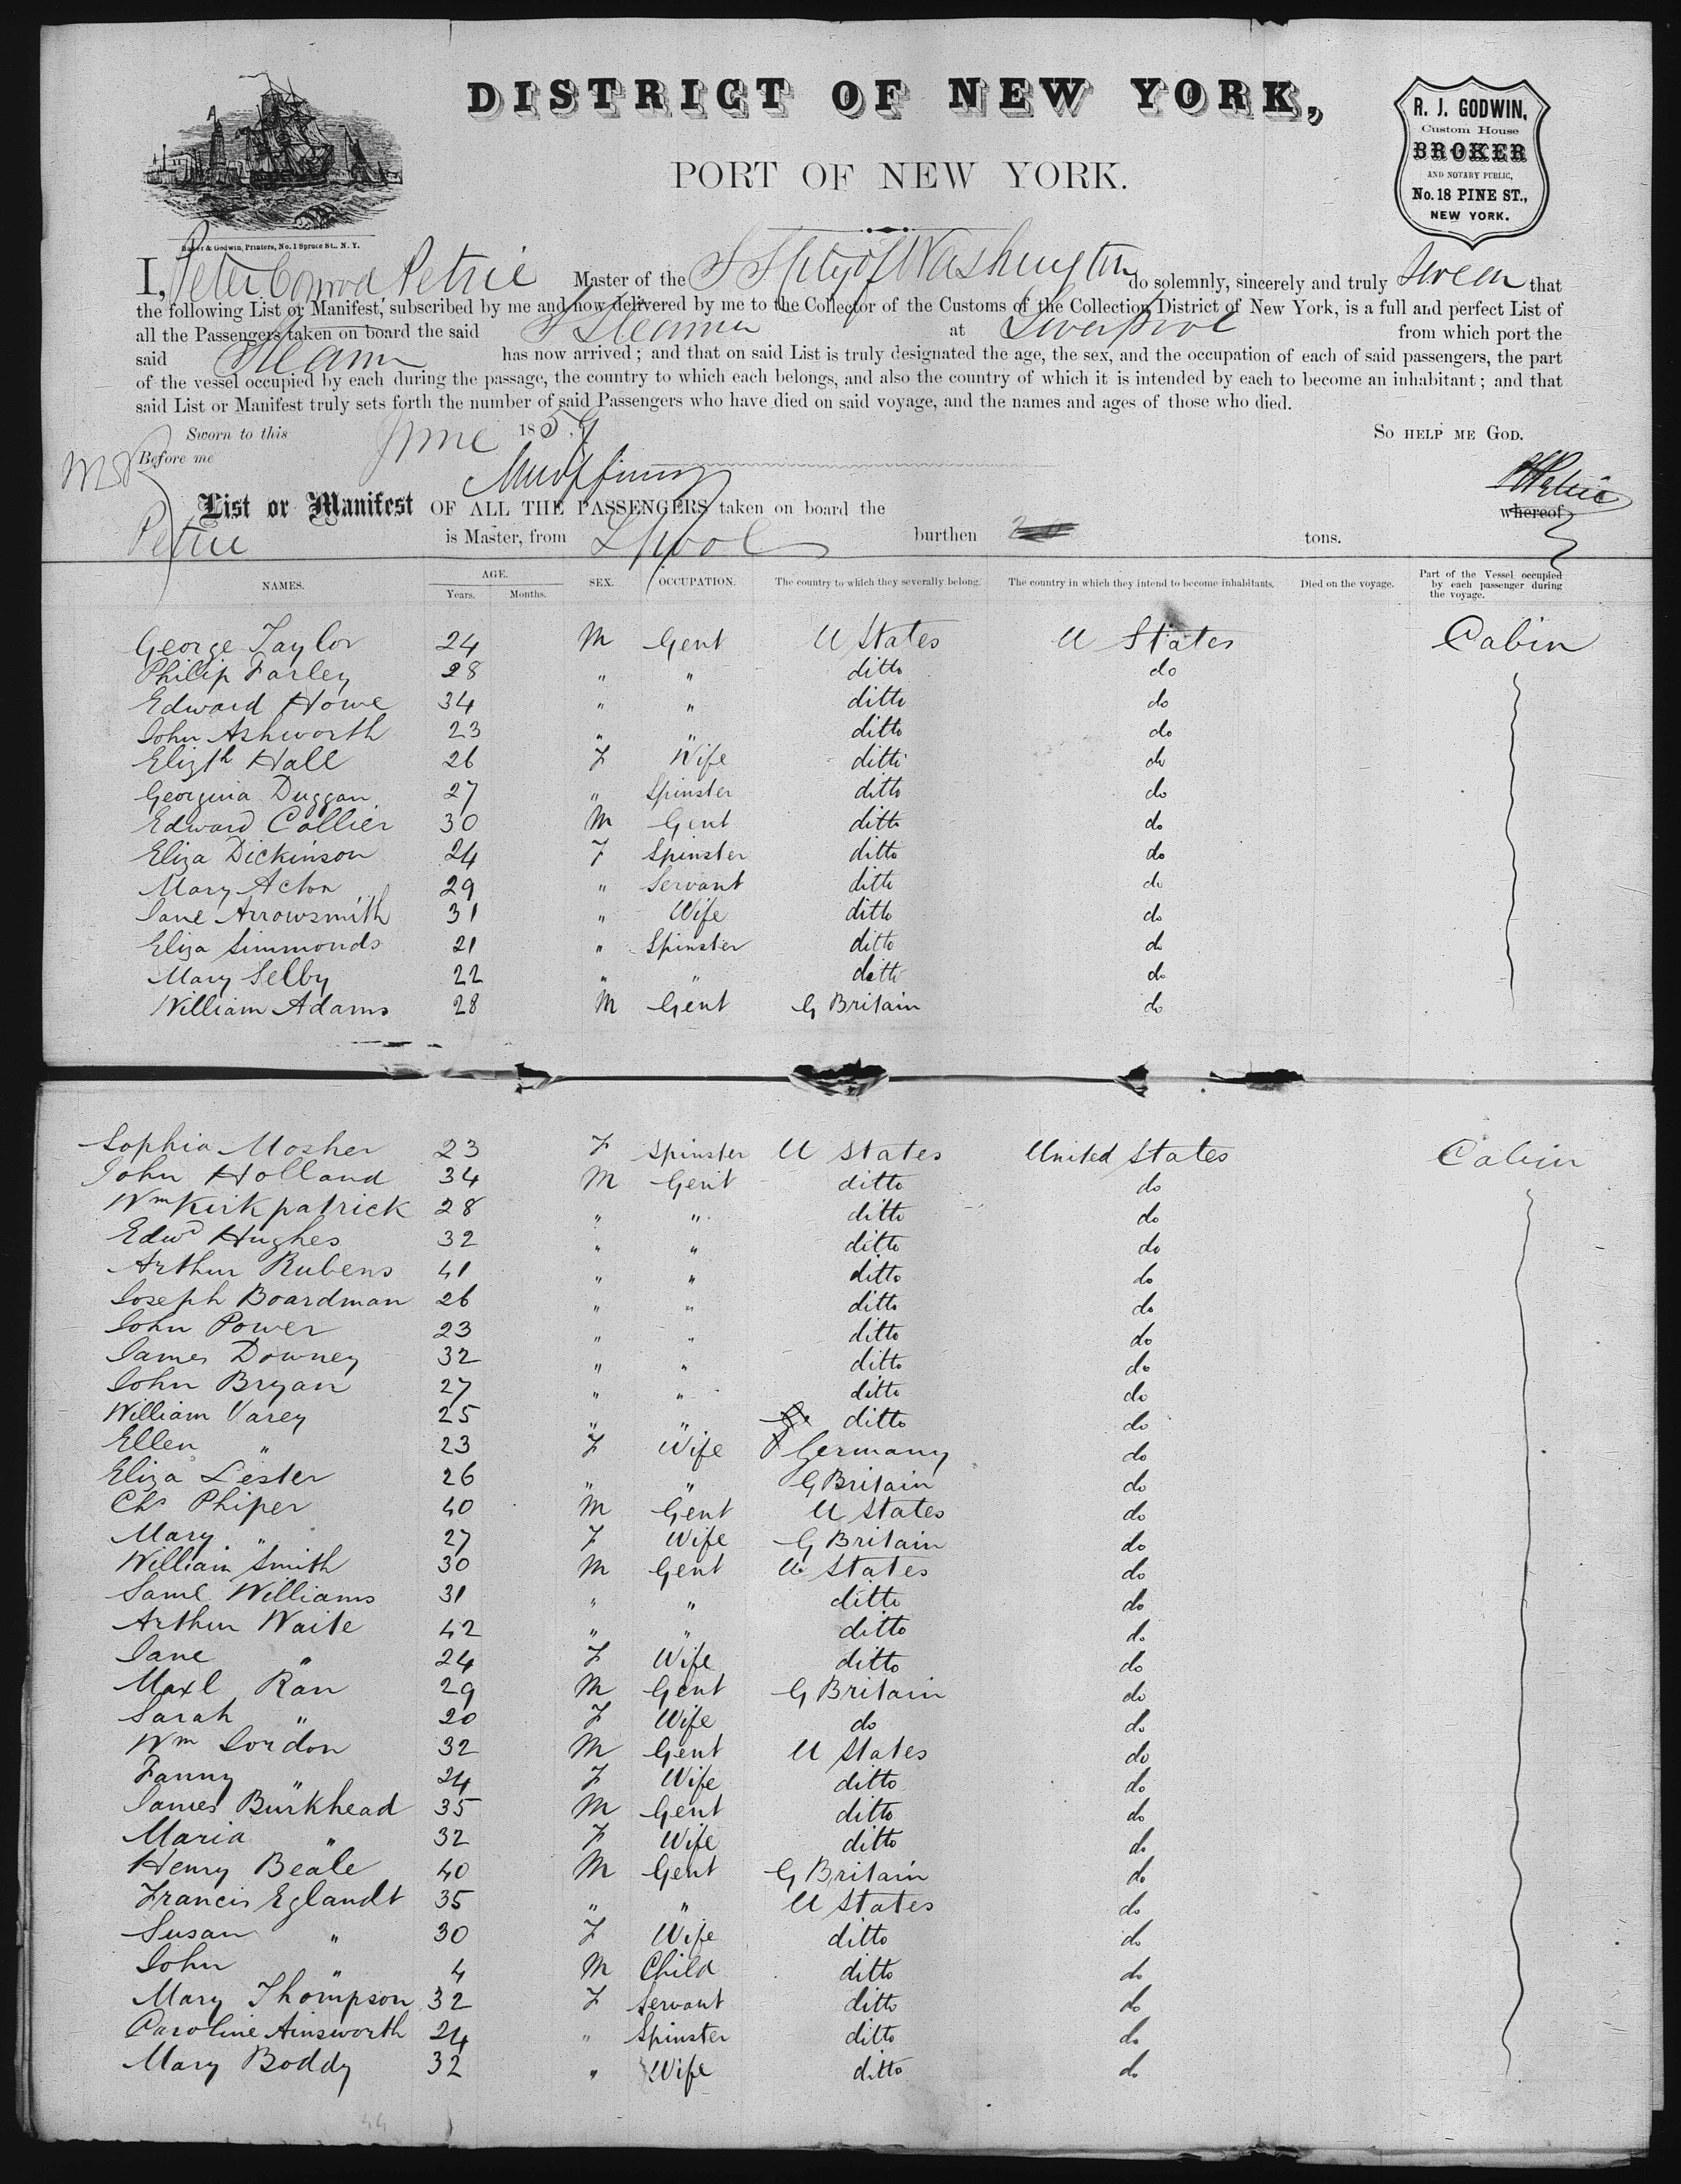 DISTRICT OF NEW YORK,
PORT OF NEW YORK.
R. J. GODWIN,
Custom House
BROKER
AND NOTARY PUBLIC,
No. 18 PINE ST.,
NEW YORK.
Baker & Godwin, Printers, No. 1 Spruce St., N. Y.
I, Peter Conrad Petrie Master of the S S City of Washington do solemnly, sincerely and truly swear that
the following List or Manifest, subscribed by me and now delivered by me to the Collector of the Customs of the Collection District of New York, is a full and perfect List of
all the Passengers taken on board the said Steamer at Liverpool from which port the
said Steam has now arrived; and that on said List is truly designated the age, the sex, and the occupation of each of said passengers, the part
of the vessel occupied by each during the passage, the country to which each belongs, and also the country of which it is intended by each to become an inhabitant; and that
said List or Manifest truly sets forth the number of said Passengers who have died on said voyage, and the names and ages of those who died.
Sworn to this June 1859 So help me God.
Before me
List or Manifest OF ALL THE PASSENGERS taken on board the whereof
Petrie is Master, from Lpool burthen tons.
NAMES. AGE. Years. Months. SEX. OCCUPATION. The country to which they severally belong. The country in which they intend to become inhabitants. Died on the voyage. Part of the Vessel occupied by each passenger during the voyage.
George Taylor 24 M Gent U States U States Cabin
Philip Farley 28 " " ditto do
Edward Howe 34 " " ditto do
John Ashworth 23 " " ditto do
Elizth Hall 26 F Wife ditto do
Georgina Duggan 27 " Spinster ditto do
Edward Collier 30 M Gent ditto do
Eliza Dickinson 24 F Spinster ditto do
Mary Acton 29 " Servant ditto do
Jane Arrowsmith 31 " Wife ditto do
Eliza Simmonds 21 " Spinster ditto do
Mary Selby 22 " " ditto do
William Adams 28 M Gent G Britain do
Sophia Mosher 23 F Spinster U States United States Cabin
John Holland 34 M Gent ditto do
Wm Kirkpatrick 28 " " ditto do
Edwd Hughes 32 " " ditto do
Arthur Rubens 41 " " ditto do
Joseph Boardman 26 " " ditto do
John Power 23 " " ditto do
James Downey 32 " " ditto do
John Bryan 27 " " ditto do
William Varey 25 " " ditto do
Ellen " 23 F Wife Germany do
Eliza Lester 26 " " G Britain do
Chs Phiper 40 M Gent U States do
Mary " 27 F Wife G Britain do
William Smith 30 M Gent U States do
Saml Williams 31 " " ditto do
Arthur Waite 42 " " ditto do
Jane " 24 F Wife ditto do
Maxl Ran 29 M Gent G Britain do
Sarah " 20 F Wife do do
Wm Gordon 32 M Gent U States do
Fanny " 24 F Wife ditto do
James Burkhead 35 M Gent ditto do
Maria " 32 F Wife ditto do
Henry Beale 40 M Gent G Britain do
Francis Eglandt 35 " " U States do
Susan " 30 F Wife ditto do
John " 4 M Child ditto do
Mary Thompson 32 F Servant ditto do
Caroline Ainsworth 24 " Spinster ditto do
Mary Boddy 32 " Wife ditto do
44